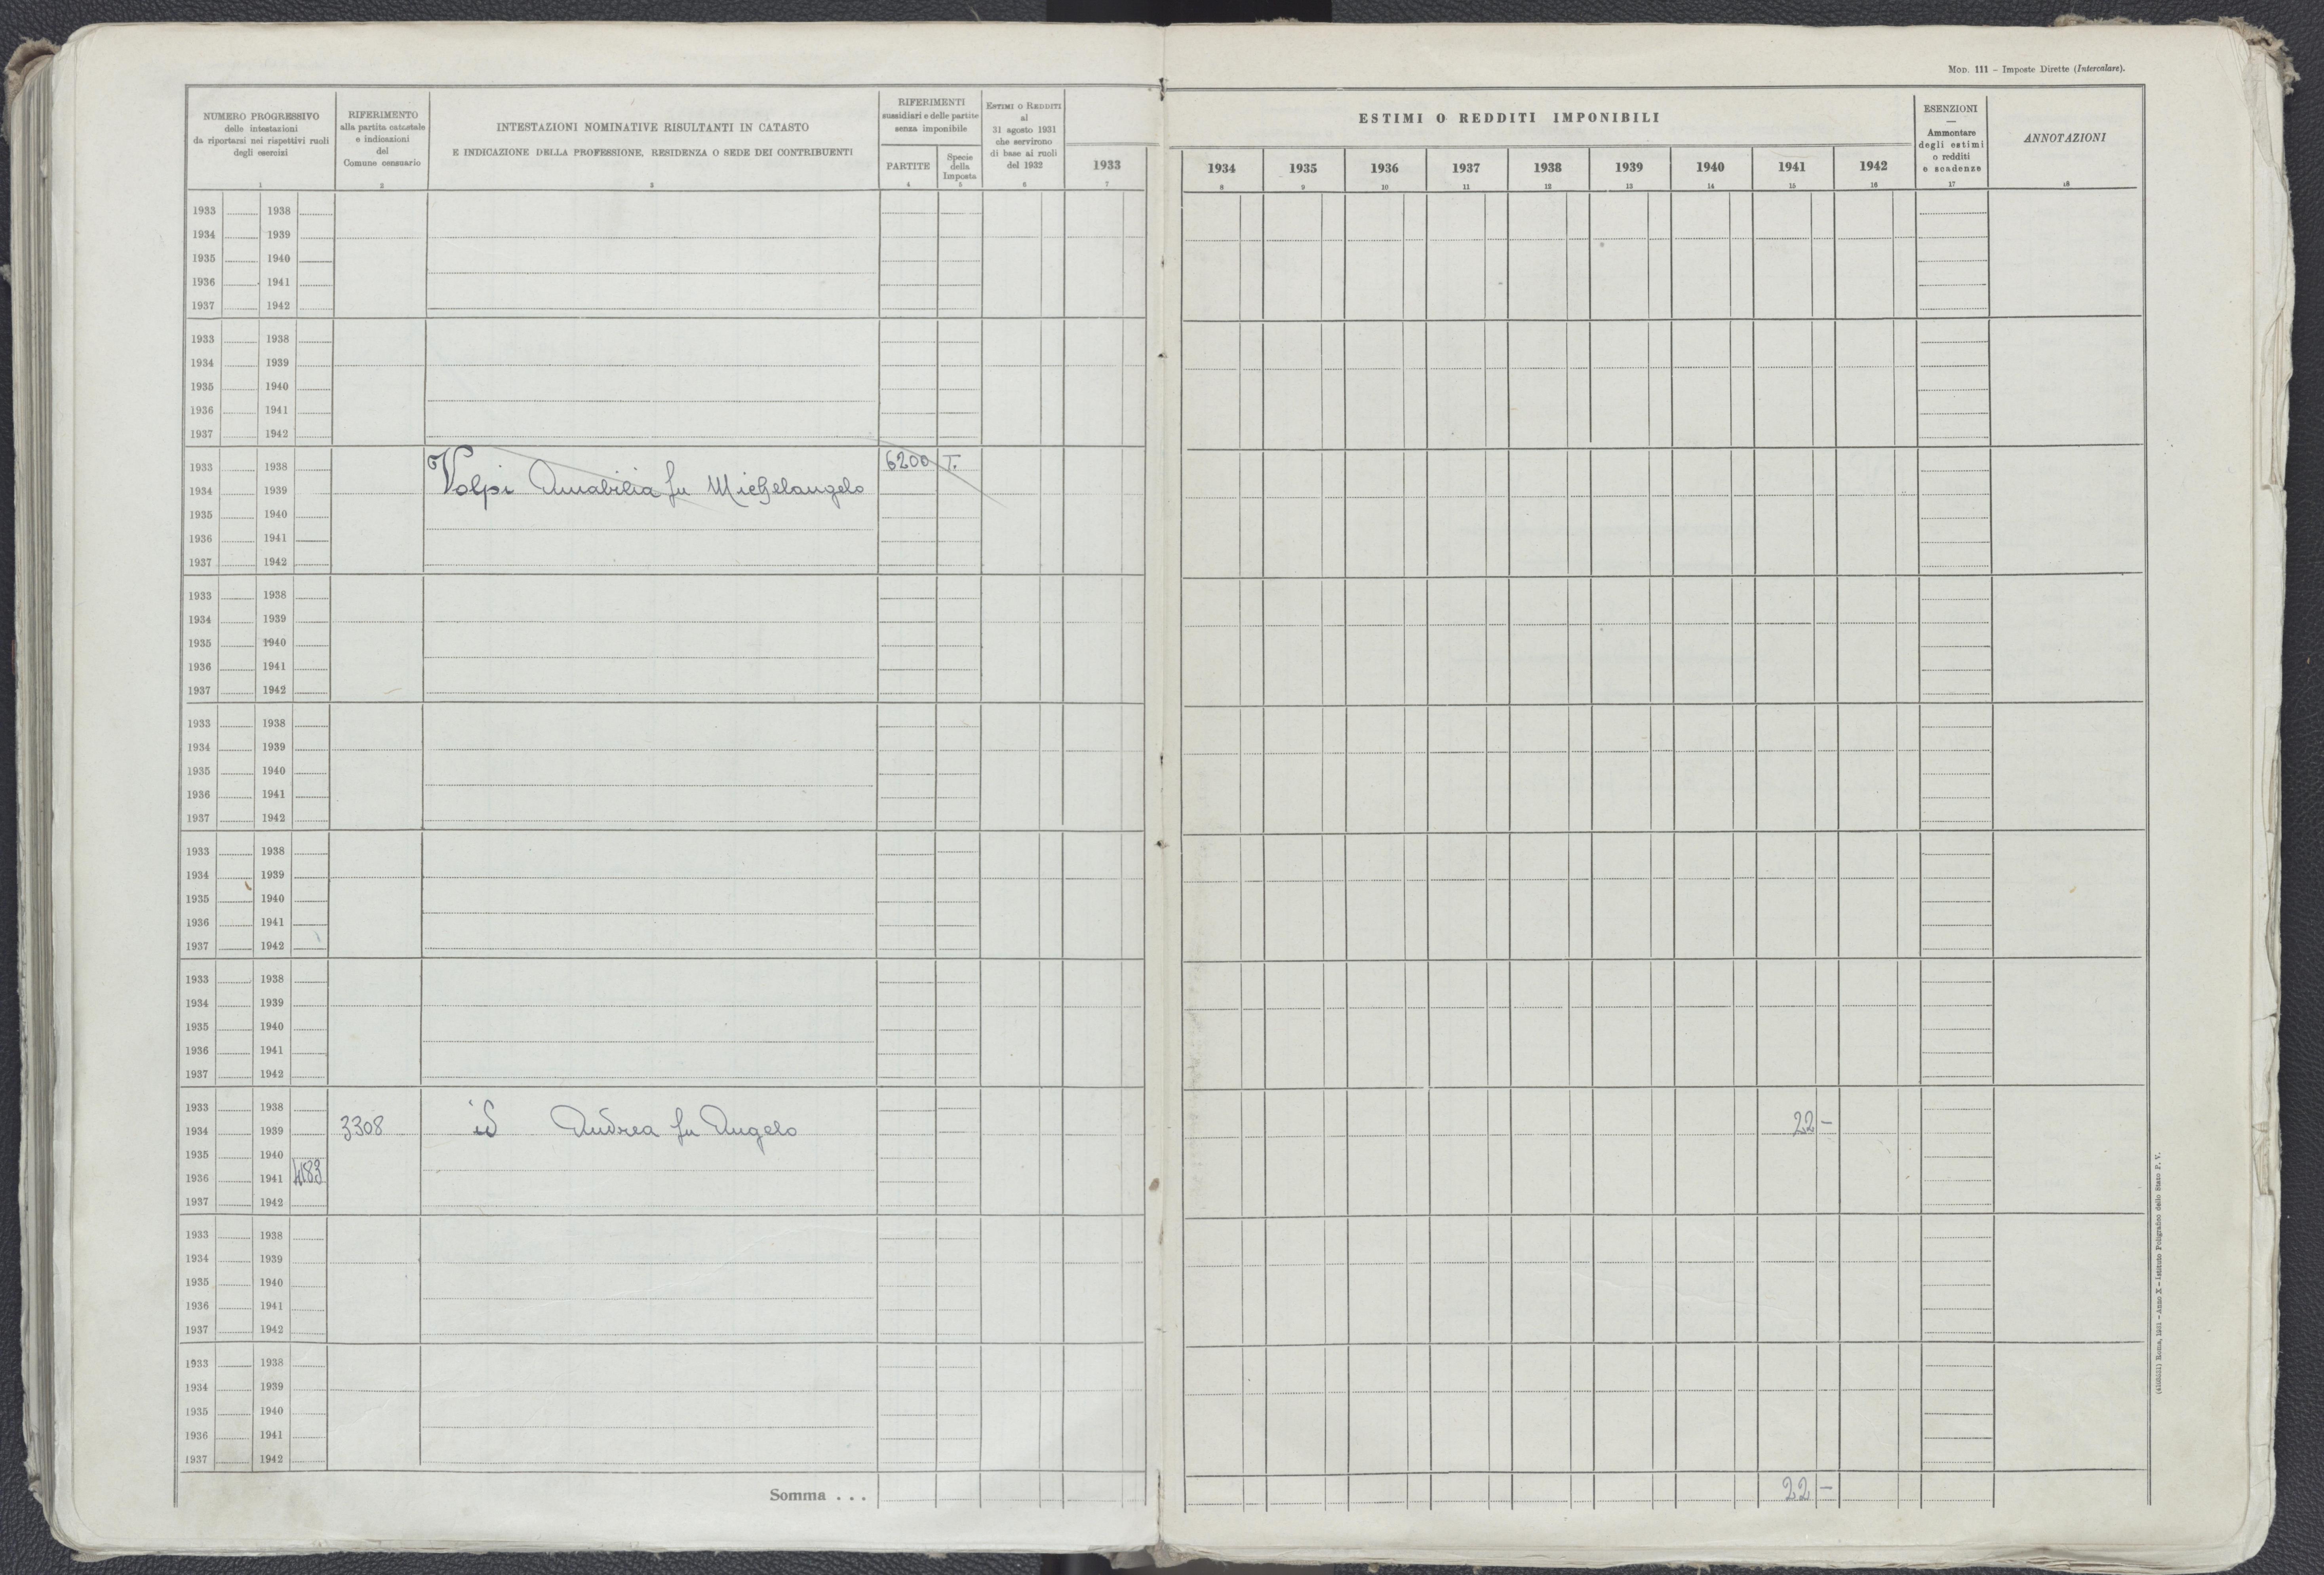 MOD. 111 – Imposte Dirette (Intercalare).
NUMERO PROGRESSIVO
delle intestazioni
da riportarsi nei rispettivi ruoli
degli esercizi
1
RIFERIMENTO
alla partita catastale
e indicazioni
del
Comune censuario
2
INTESTAZIONI NOMINATIVE RISULTANTI IN CATASTO
E INDICAZIONE DELLA PROFESSIONE, RESIDENZA O SEDE DEI CONTRIBUENTI
3
RIFERIMENTI
sussidiari e delle partite
senza imponibile
PARTITE
4
Specie
della
Imposta
5
ESTIMI O REDDITI
al
31 agosto 1931
che servirono
di base ai ruoli
del 1932
6
1933
7
ESTIMI O REDDITI IMPONIBILI
1934 1935 1936 1937 1938 1939 1940 1941 1942
8 9 10 11 12 13 14 15 16
ESENZIONI
—
Ammontare
degli estimi
o redditi
e scadenze
17
ANNOTAZIONI
18
1933 1938
1934 1939
1935 1940
1936 1941
1937 1942
1933 1938
1934 1939
1935 1940
1936 1941
1937 1942
1933 1938 6200 T.
1934 1939 Volpi Amabilia fu Michelangelo
1935 1940
1936 1941
1937 1942
1933 1938
1934 1939
1935 1940
1936 1941
1937 1942
1933 1938
1934 1939
1935 1940
1936 1941
1937 1942
1933 1938
1934 1939
1935 1940
1936 1941
1937 1942
1933 1938
1934 1939
1935 1940
1936 1941
1937 1942
1933 1938
1934 1939 3308 id Andrea fu Angelo 22 –
1935 1940
1936 1941 4183
1937 1942
1933 1938
1934 1939
1935 1940
1936 1941
1937 1942
1933 1938
1934 1939
1935 1940
1936 1941
1937 1942
Somma . . . 22 –
Roma, 1931 – Anno X – Istituto Poligrafico dello Stato P. V.